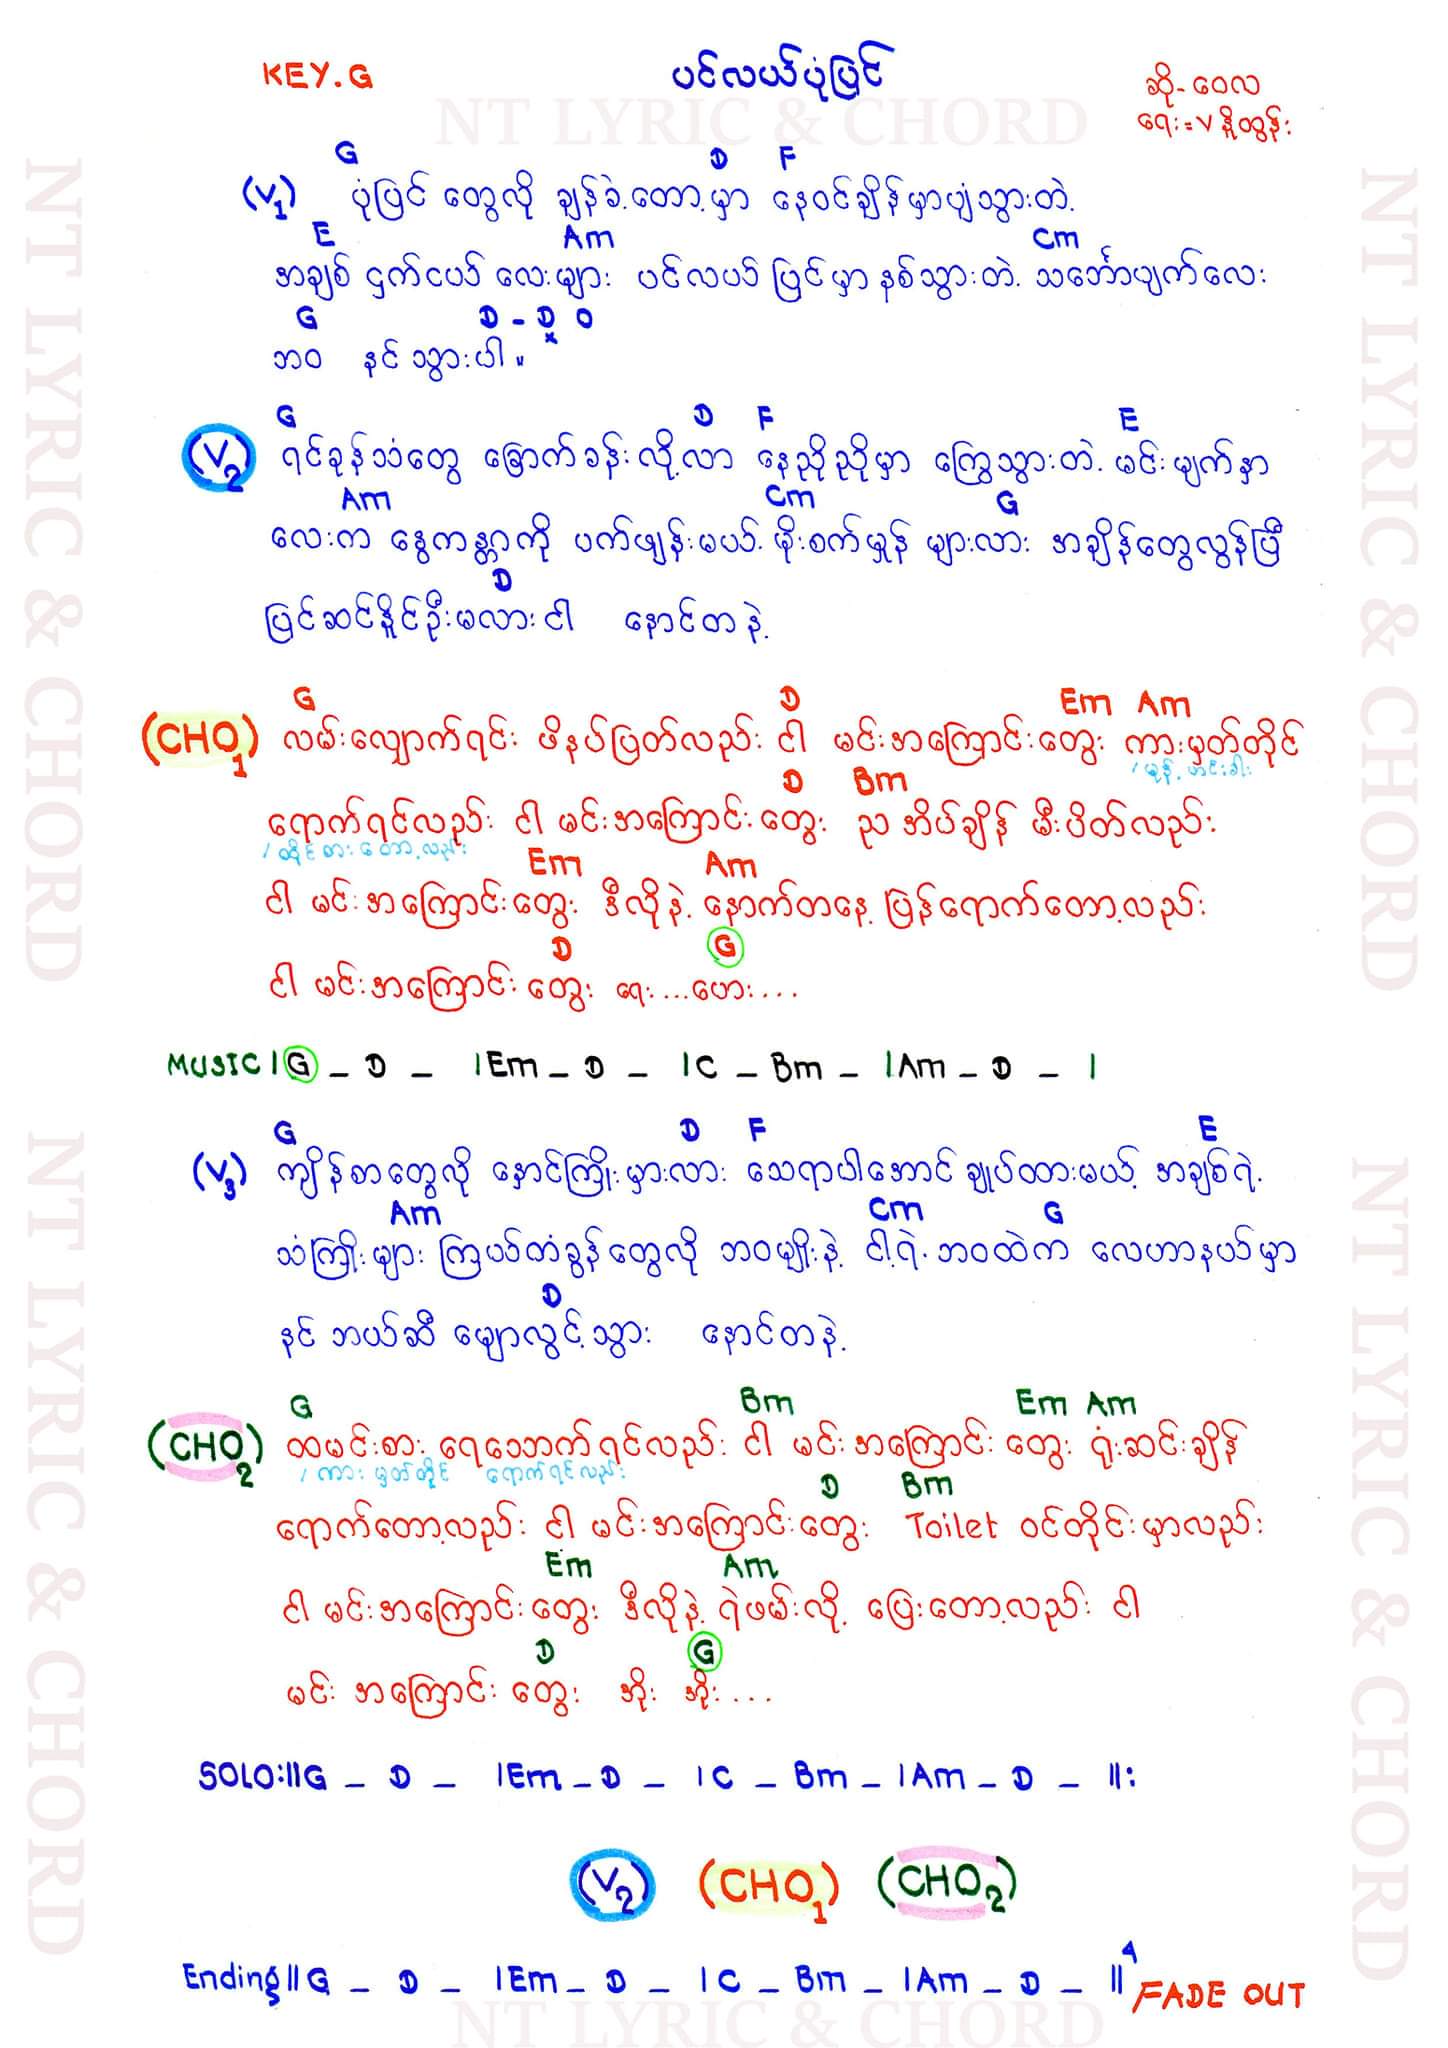 KEY.G
ပင်လယ်ပုံပြင်
ဆို-ဝေလ
ရေး=V နိူထွန်း
NT LYRIC & CHORD
G D F
(V1) ပုံပြင် တွေလို ချန်ခဲ့တော့မှာ နေဝင်ချိန်မှာပျံသွားတဲ့
E Am Cm
အချစ် ငှက်ငယ် လေးများ ပင်လယ် ပြင်မှာ နစ်သွားတဲ့ သင်္ဘောပျက်လေး
G D - D x O
ဘဝ နင် သွားပါ။
G D F E
(V2) ရင်ခုန်သံတွေ ခြောက်ခန်းလို့လာ နေညိုညိုမှာ ကြွေသွားတဲ့ မင်းမျက်နှာ
Am Cm G
လေးက နွေကန္တာကို ပက်ဖျန်းမယ့် မိုးစက်မှုန် များလား အချိန်တွေလွန်ပြီ
D
ပြင်ဆင်နိူင်ဦးမလားငါ နောင်တနဲ့
G D Em Am
(CHO1) လမ်းလျှောက်ရင်း ဖိနပ်ပြတ်လည်း ငါ မင်းအကြောင်းတွေး ကားမှတ်တိုင်
/ မုန့်ဟင်းခါး
D Bm
ရောက်ရင်လည်း ငါ မင်းအကြောင်းတွေး ည အိပ်ချိန် မီးပိတ်လည်း
/ ထိုင်စားတော့လည်း
Em Am
ငါ မင်းအကြောင်းတွေး ဒီလိုနဲ့ နောက်တနေ့ ပြန်ရောက်တော့လည်း
D G
ငါ မင်းအကြောင်းတွေး ရေး...ဟေး...
MUSIC | G _ D _ | Em _ D _ | C _ Bm _ | Am _ D _ |
G D F E
(V3) ကျိန်စာတွေလို နှောင်ကြိုးမှားလား သေရာပါအောင် ချုပ်ထားမယ့် အချစ်ရဲ့
Am Cm G
သံကြိုးများ ကြယ်တံခွန်တွေလို ဘဝမျိုးနဲ့ ငါ့ရဲ့ဘဝထဲက လေဟာနယ်မှာ
D
နင် ဘယ်ဆီ မျောလွင့်သွား နောင်တနဲ့
G Bm Em Am
(CHO2) ထမင်းစား ရေသောက်ရင်လည်း ငါ မင်းအကြောင်းတွေး ရုံးဆင်းချိန်
/ ကားမှတ်တိုင် ရောက်ရင်လည်း
D Bm
ရောက်တော့လည်း ငါ မင်းအကြောင်းတွေး Toilet ဝင်တိုင်းမှာလည်း
Em Am
ငါ မင်းအကြောင်းတွေး ဒီလိုနဲ့ ရဲဖမ်းလို့ ပြေးတော့လည်း ငါ
D G
မင်းအကြောင်းတွေး အိုး အိုး...
SOLO:||G _ D _ |Em _ D _ |C _ Bm _ |Am _ D _ ||:
(V2) (CHO1) (CHO2)
Ending||G _ D _ |Em _ D _ |C _ Bm _ |Am _ D _ ||4 FADE OUT
NT LYRIC & CHORD
NT LYRIC & CHORD
NT LYRIC & CHORD
NT LYRIC & CHORD
NT LYRIC & CHORD